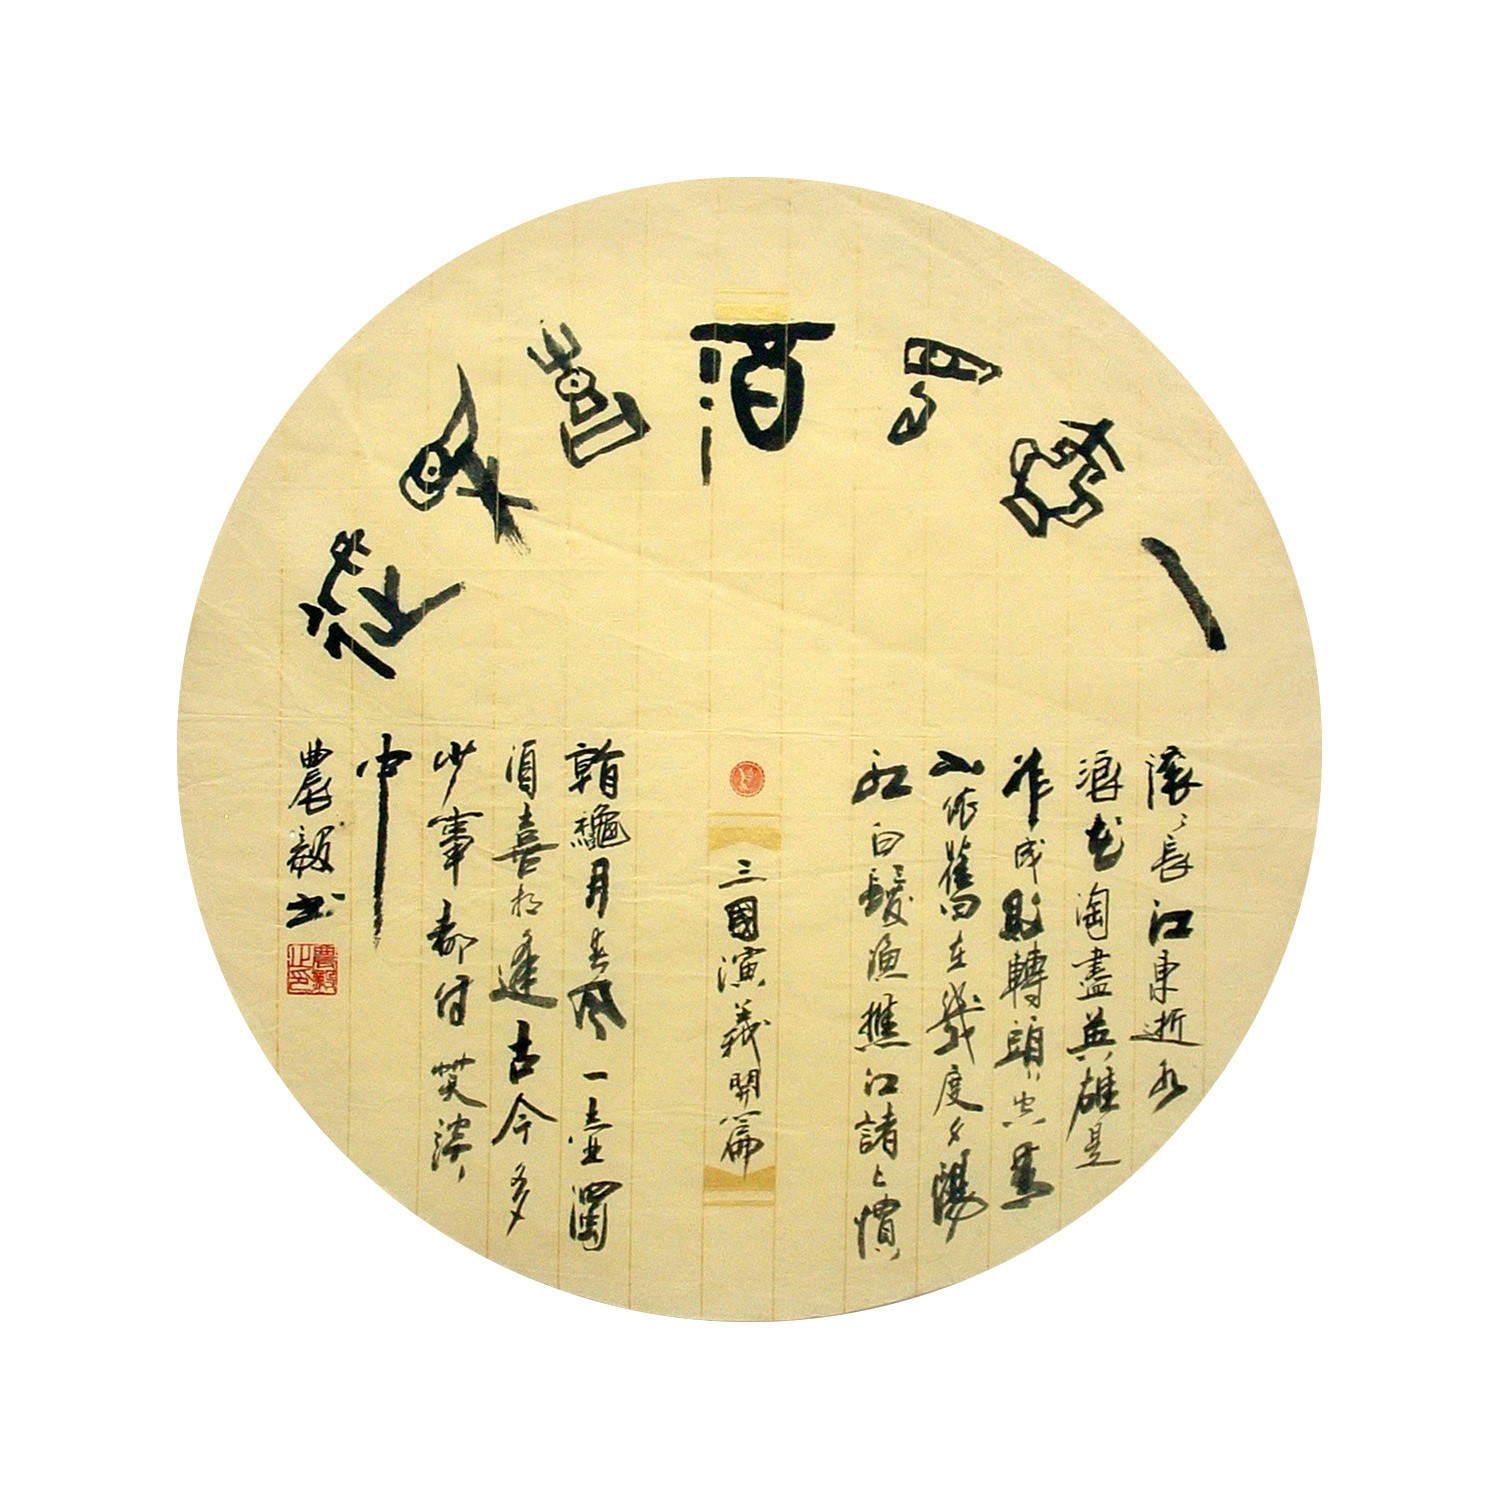 一壺濁酒喜相逢
滚〻長江東逝水
浪花淘盡英雄是
非成敗轉頭空青
山依舊在幾度夕陽
紅白髮漁樵江諸上慣
三國演義開篇
看龝月春風一壺濁
酒喜相逢古今多
少事都付笑談
中
農毅书
農毅之印